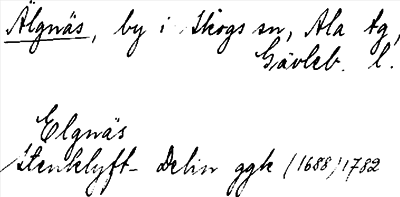 Älgnäs, by i Skogs sn, Ala tg,
Gävleb. l.
Elgnäs
Stenklyft- Delin ggk (1688) 1782